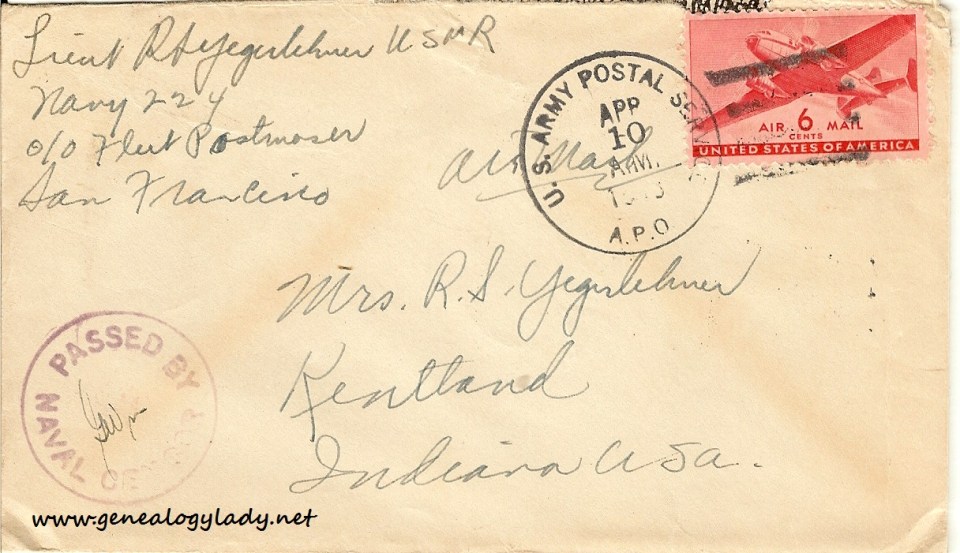 Lieut R S Yegerlehner USNR
Navy 224
c/o Fleet Postmaser
San Francisco
Air Mail
U.S. ARMY POSTAL SERVICE
APR
10
AM
A.P.O
AIR 6 MAIL
CENTS
UNITED STATES OF AMERICA
Mrs. R. S. Yegerlehner
Kentland
Indiana USA.
PASSED BY
NAVAL CENSOR
www.genealogylady.net